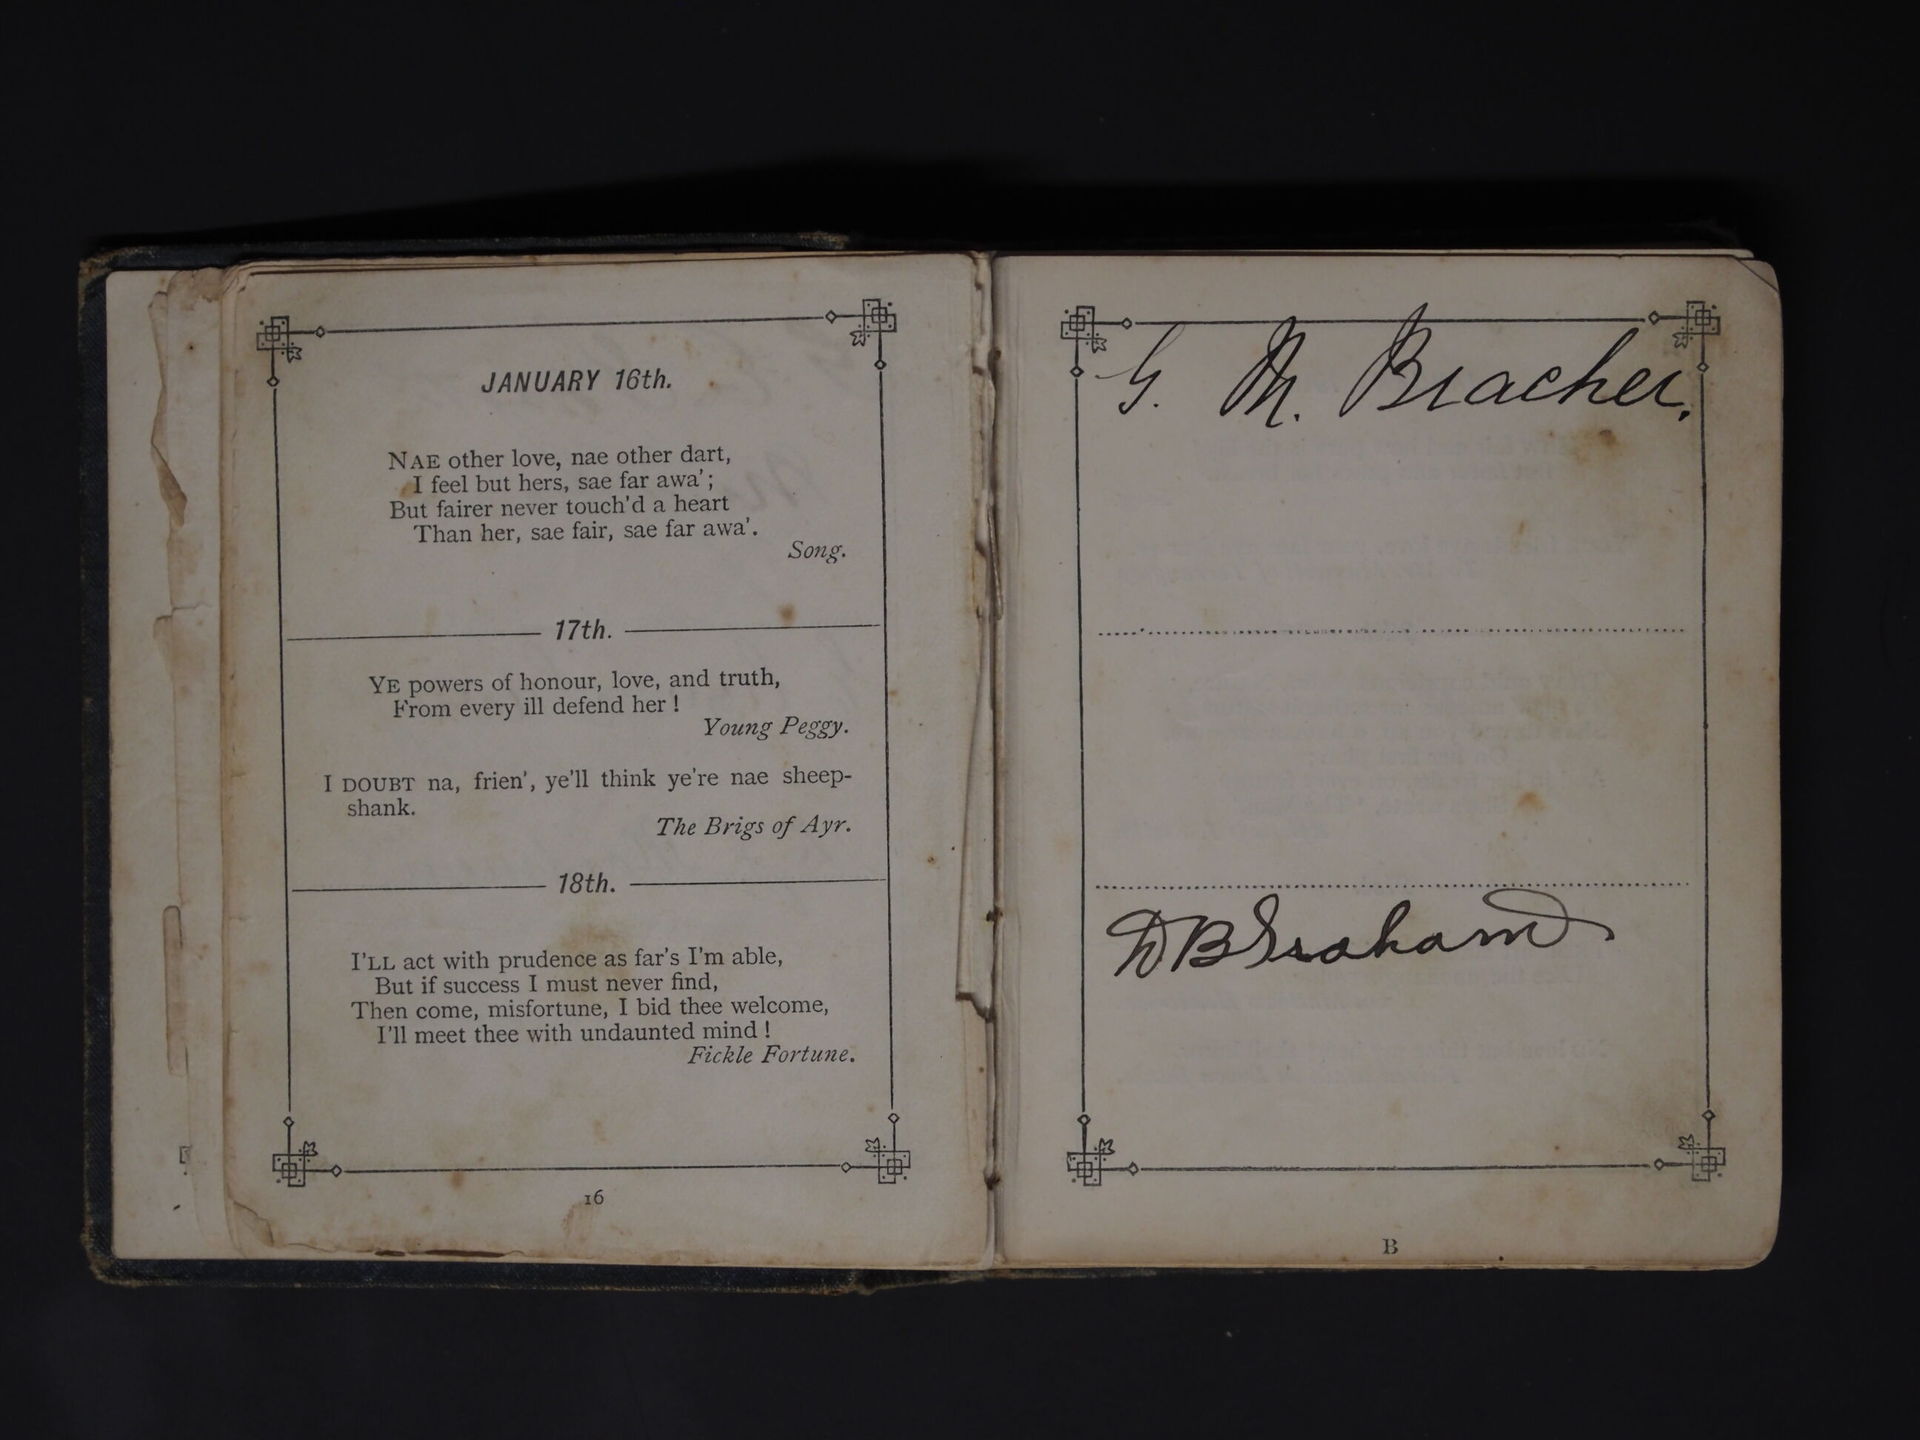 JANUARY 16th.
NAE other love, nae other dart,
I feel but hers, sae far awa';
But fairer never touch'd a heart
Than her, sae fair, sae far awa'.
Song.
17th.
YE powers of honour, love, and truth,
From every ill defend her!
Young Peggy.
I DOUBT na, frien', ye'll think ye're nae sheep-
shank.
The Brigs of Ayr.
18th.
I'LL act with prudence as far's I'm able,
But if success I must never find,
Then come, misfortune, I bid thee welcome,
I'll meet thee with undaunted mind!
Fickle Fortune.
16
G. M. Bracher.
D B Graham
B